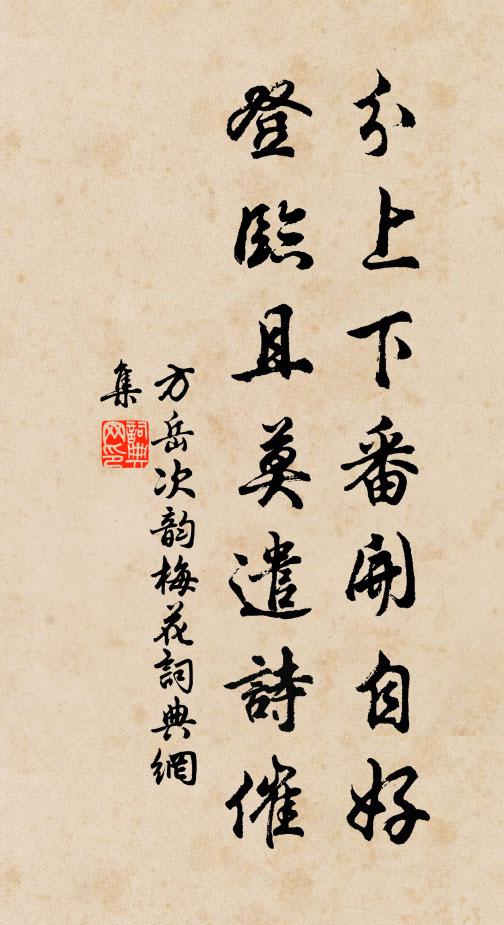 分上下番開自好
登臨且莫遣詩催
方岳次韵梅花詞典網
集
詞典
网印